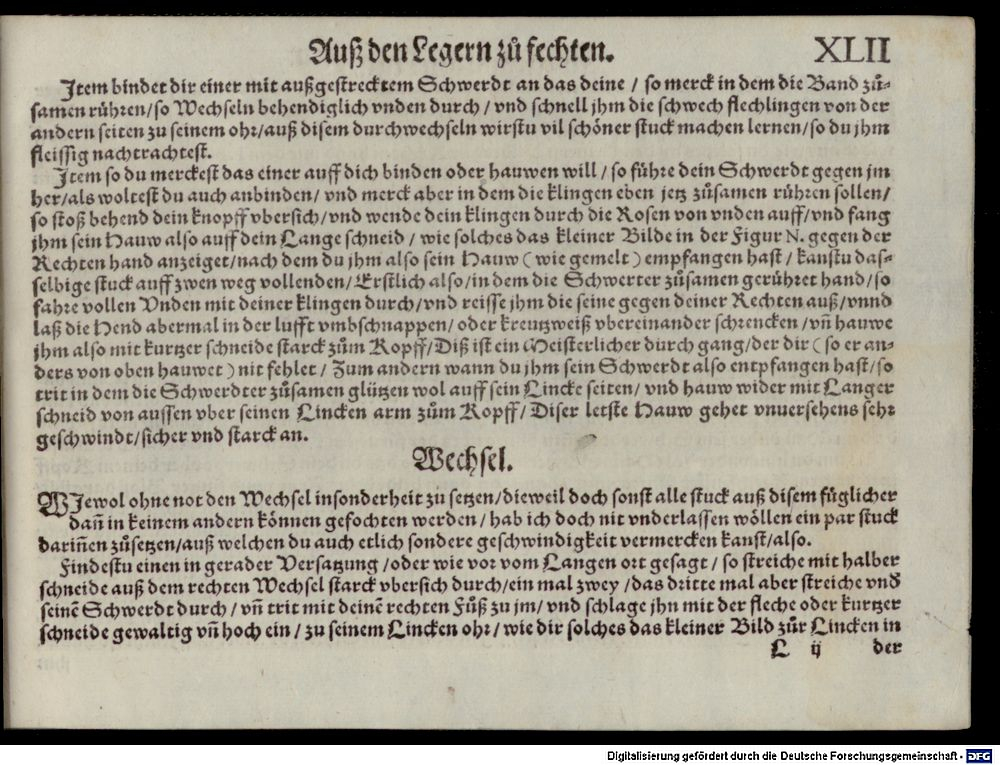 Auß den Legern zů fechten. XLII
Jtem bindet dir einer mit außgestrecktem Schwerdt an das deine / so merck in dem die Band zů-
samen rühren/so Wechseln behendiglich vnden durch / vnd schnell jhm die schwech flechlingen von der
andern seiten zu seinem ohr/auß disem durchwechseln wirstu vil schöner stuck machen lernen/so du jhm
fleissig nachtrachtest.
Jtem so du merckest das einer auff dich binden oder hauwen will / so führe dein Schwerdt gegen jm
her/als woltest du auch anbinden/ vnd merck aber in dem die klingen eben jetz zůsamen rühren sollen/
so stoß behend dein knopff vbersich/vnd wende dein klingen durch die Rosen von vnden auff/vnd fang
jhm sein Hauw also auff dein Lange schneid / wie solches das kleiner Bilde in der Figur N. gegen der
Rechten hand anzeiget/nach dem du jhm also sein Hauw (wie gemelt) empfangen hast / kanstu das-
selbige stuck auff zwen weg vollenden/Erstlich also/in dem die Schwerter zůsamen gerühret hand/so
fahre vollen Vnden mit deiner klingen durch/vnd reisse jhm die seine gegen deiner Rechten auß/vnnd
laß die Hend abermal in der lufft vmbschnappen/oder kreutzweiß vbereinander schrencken/vñ hauwe
jhm also mit kurtzer schneide starck zům Kopff/Diß ist ein Meisterlicher durch gang/der dir (so er an-
ders von oben hauwet) nit fehlet/ Zum andern wann du jhm sein Schwerdt also entpfangen hast/so
trit in dem die Schwerdter zůsamen glützen wol auff sein Lincke seiten/ vnd hauw wider mit Langer
schneid von aussen vber seinen Lincken arm zům Kopff/ Diser letste Hauw gehet vnuersehens sehr
geschwindt/sicher vnd starck an.
Wechsel.
WJewol ohne not den Wechsel insonderheit zu setzen/dieweil doch sonst alle stuck auß disem füglicher
dañ in keinem andern können gefochten werden/ hab ich doch nit vnderlassen wöllen ein par stuck
dariñen zůsetzen/auß welchen du auch etlich sondere geschwindigkeit vermercken kanst/also.
Findestu einen in gerader Versatzung/oder wie vor vom Langen ort gesagt / so streiche mit halber
schneide auß dem rechten Wechsel starck vbersich durch/ein mal zwey /das dritte mal aber streiche vnd̃
seinẽ Schwerdt durch/ vñ trit mit deinẽ rechten Fůß zu jm/ vnd schlage jhn mit der fleche oder kurtzer
schneide gewaltig vñ hoch ein / zu seinem Lincken ohr/ wie dir solches das kleiner Bild zůr Lincken in
L ij der
Digitalisierung gefördert durch die Deutsche Forschungsgemeinschaft - DFG